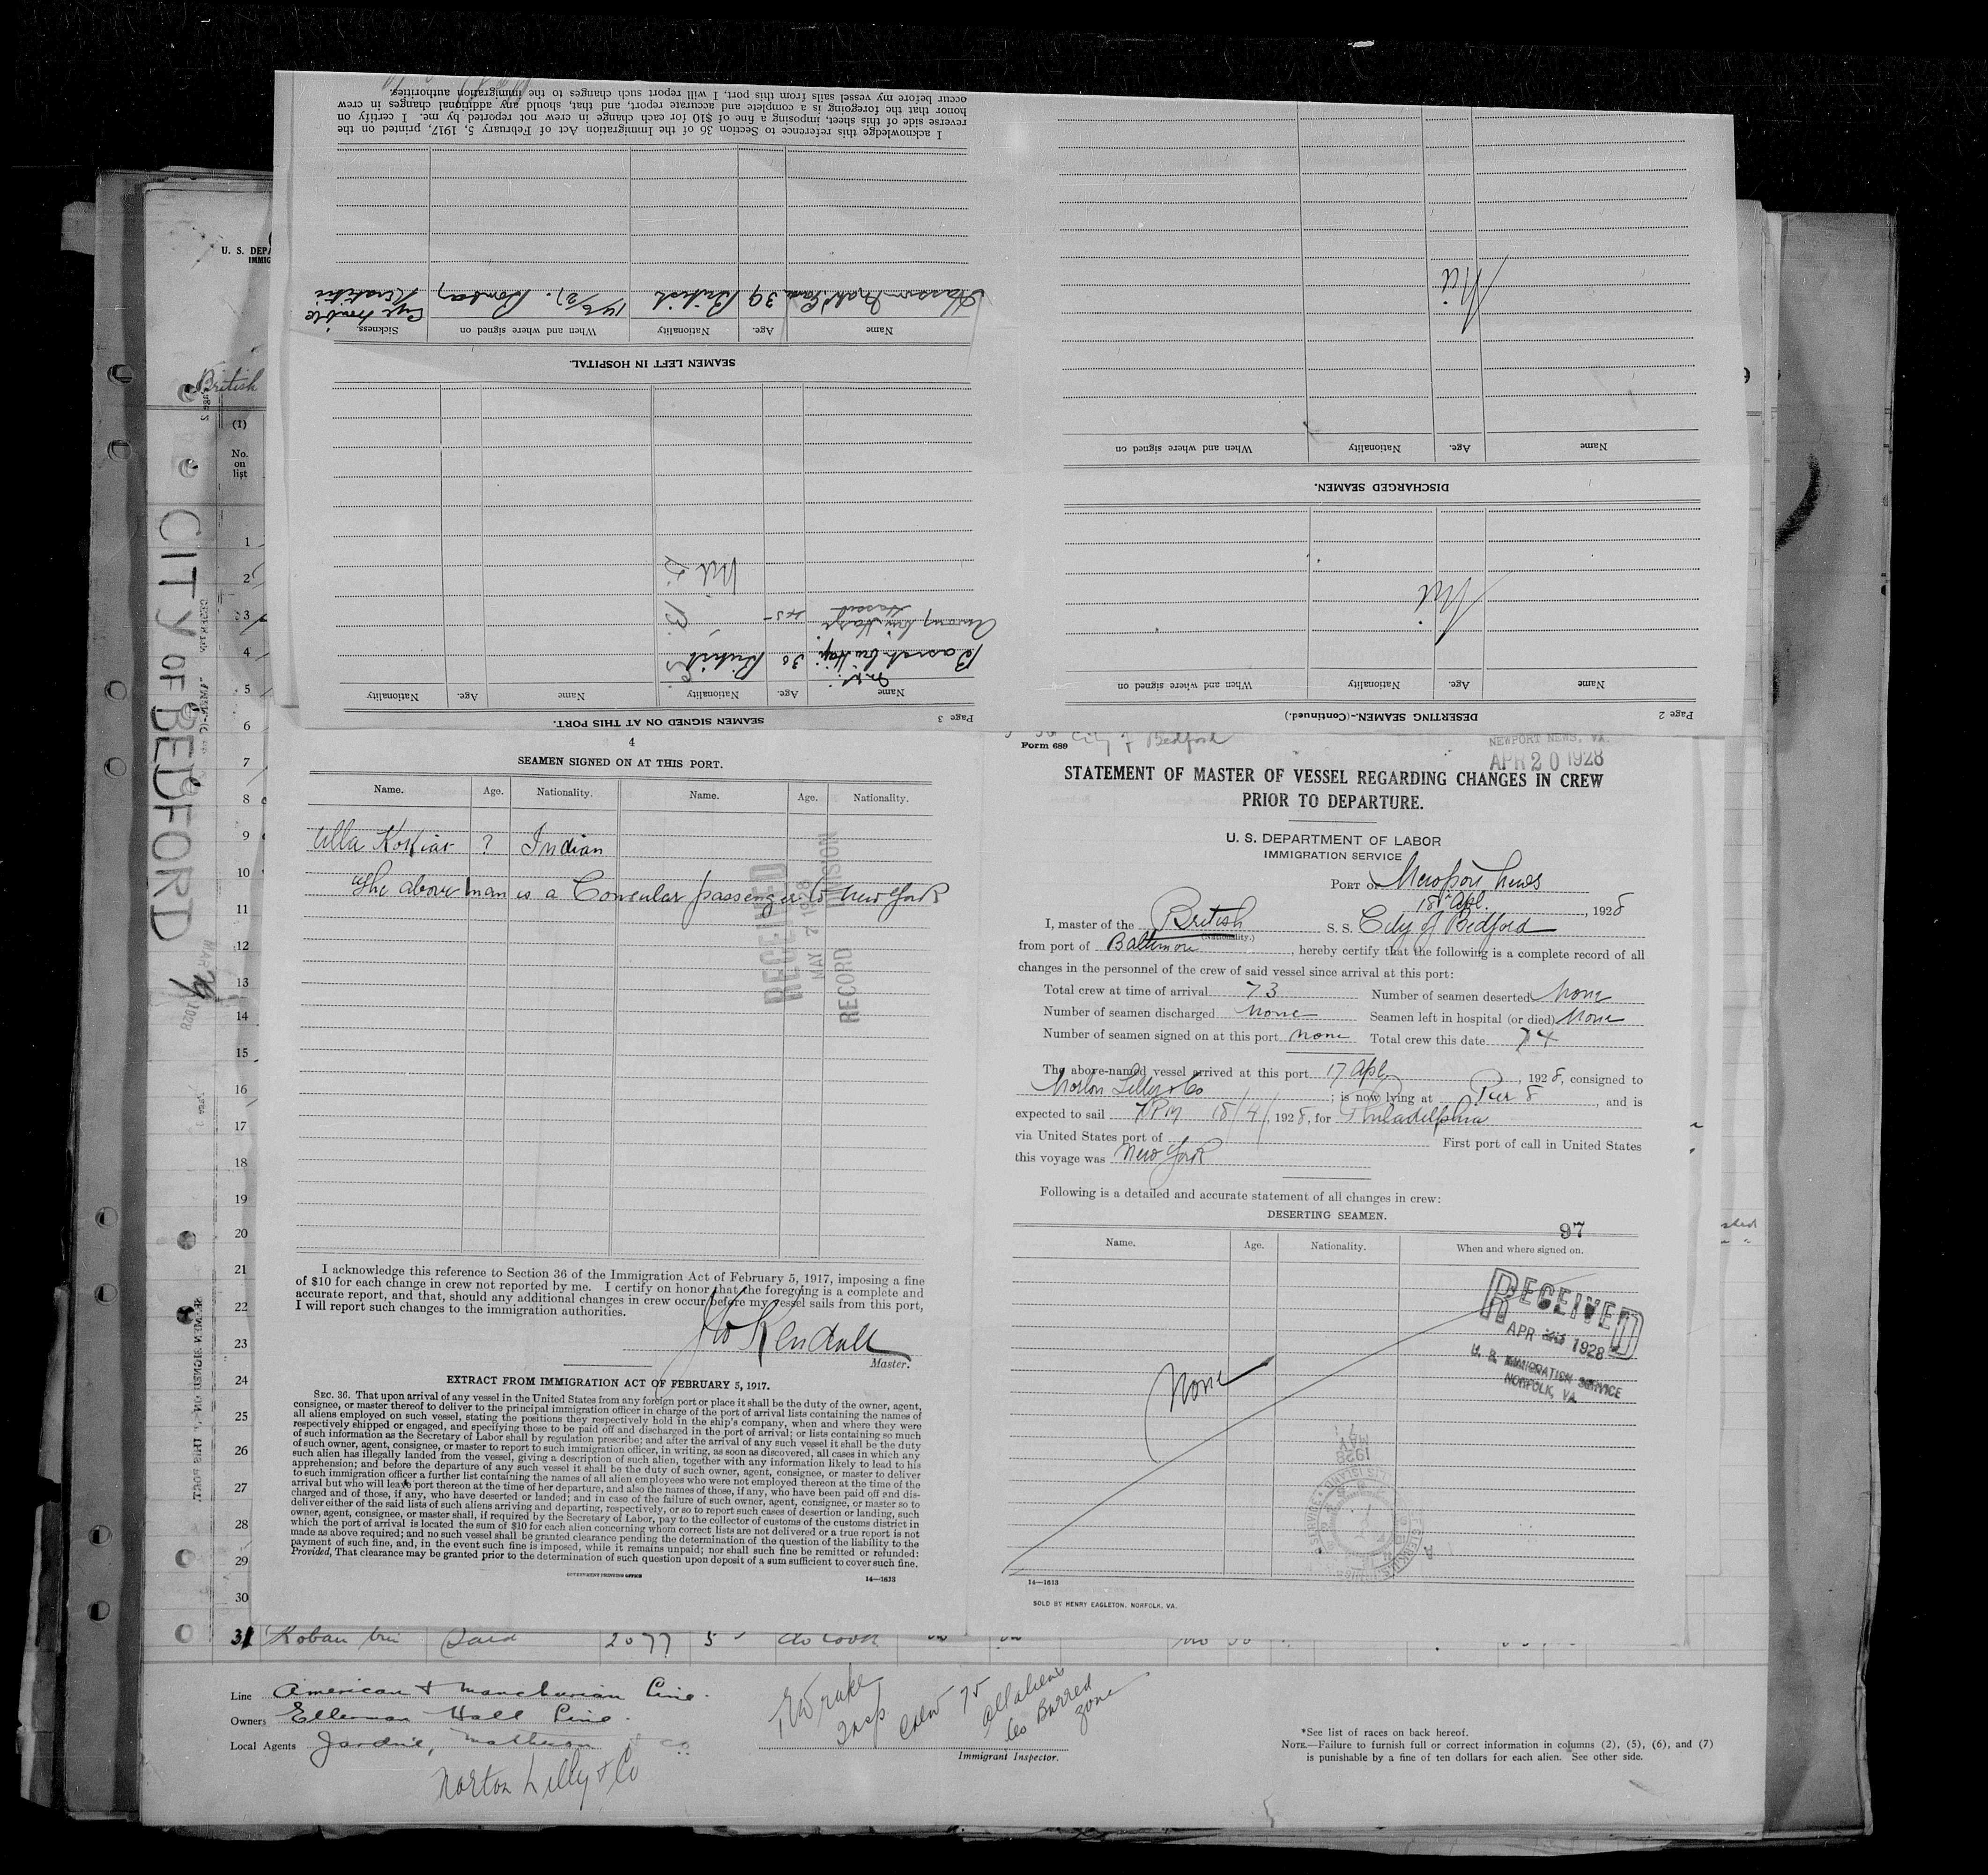 I acknowledge this reference to Section 36 of the Immigration Act of February 5, 1917, printed on the
reverse side of this sheet, imposing a fine of $10 for each change in crew not reported by me. I certify on
honor that the foregoing is a complete and accurate report, and that, should any additional changes in crew
occur before my vessel sails from this port, I will report such changes to the immigration authorities.
Page 3
SEAMEN SIGNED ON AT THIS PORT.
Name Age. Nationality Name Age. Nationality
30 British
45
Nil
SEAMEN LEFT IN HOSPITAL.
Name Age. Nationality When and where signed on Sickness.
39 British Bombay Eye trouble
Page 2
DESERTING SEAMEN.—(Continued.)
Name Age. Nationality When and where signed on
Nil
DISCHARGED SEAMEN.
Name Age. Nationality When and where signed on
Nil
U. S. DEPA
IMMIG
British
(1)
No.
on
list
1
2
3
4
5
6
7
8
9
10
11
12
13
14
15
16
17
18
19
20
21
22
23
24
25
26
27
28
29
30
31 Koban bin Said 2077
CITY OF BEDFORD
4
SEAMEN SIGNED ON AT THIS PORT.
Name. Age. Nationality. Name. Age. Nationality.
Ulla Kokiar ? Indian
The above man is a Consular passenger to New York
RECEIVED
MAY 7 1928
RECORD DIVISION
I acknowledge this reference to Section 36 of the Immigration Act of February 5, 1917, imposing a fine
of $10 for each change in crew not reported by me. I certify on honor that the foregoing is a complete and
accurate report, and that, should any additional changes in crew occur before my vessel sails from this port,
I will report such changes to the immigration authorities.
Kendall
Master.
EXTRACT FROM IMMIGRATION ACT OF FEBRUARY 5, 1917.
SEC. 36. That upon arrival of any vessel in the United States from any foreign port or place it shall be the duty of the owner, agent,
consignee, or master thereof to deliver to the principal immigration officer in charge of the port of arrival lists containing the names of
all aliens employed on such vessel, stating the positions they respectively hold in the ship's company, when and where they were
respectively shipped or engaged, and specifying those to be paid off and discharged in the port of arrival; or lists containing so much
of such information as the Secretary of Labor shall by regulation prescribe; and after the arrival of any such vessel it shall be the duty
of such owner, agent, consignee, or master to report to such immigration officer, in writing, as soon as discovered, all cases in which any
such alien has illegally landed from the vessel, giving a description of such alien, together with any information likely to lead to his
apprehension; and before the departure of any such vessel it shall be the duty of such owner, agent, consignee, or master to deliver
to such immigration officer a further list containing the names of all alien employees who were not employed thereon at the time of the
arrival but who will leave port thereon at the time of her departure, and also the names of those, if any, who have been paid off and dis-
charged and of those, if any, who have deserted or landed; and in case of the failure of such owner, agent, consignee, or master so to
deliver either of the said lists of such aliens arriving and departing, respectively, or so to report such cases of desertion or landing, such
owner, agent, consignee, or master shall, if required by the Secretary of Labor, pay to the collector of customs of the customs district in
which the port of arrival is located the sum of $10 for each alien concerning whom correct lists are not delivered or a true report is not
made as above required; and no such vessel shall be granted clearance pending the determination of the question of the liability to the
payment of such fine, and, in the event such fine is imposed, while it remains unpaid; nor shall such fine be remitted or refunded:
Provided, That clearance may be granted prior to the determination of such question upon deposit of a sum sufficient to cover such fine.
GOVERNMENT PRINTING OFFICE 14—1613
City of Bedford
Form 689
NEWPORT NEWS, VA.
APR 20 1928
STATEMENT OF MASTER OF VESSEL REGARDING CHANGES IN CREW
PRIOR TO DEPARTURE.
U. S. DEPARTMENT OF LABOR
IMMIGRATION SERVICE
PORT OF Newport News
18th Apl. , 1928
I, master of the British S. S. City of Bedford
(Nationality.)
from port of Baltimore, hereby certify that the following is a complete record of all
changes in the personnel of the crew of said vessel since arrival at this port:
Total crew at time of arrival 73 Number of seamen deserted None
Number of seamen discharged None Seamen left in hospital (or died) None
Number of seamen signed on at this port None Total crew this date 74
The above-named vessel arrived at this port 17 Apl. , 1928, consigned to
Norton Lilly & Co ; is now lying at Pier 8 , and is
expected to sail 7 PM 18/4/, 1928, for Philadelphia
via United States port of First port of call in United States
this voyage was New York
Following is a detailed and accurate statement of all changes in crew:
DESERTING SEAMEN.
97
Name. Age. Nationality. When and where signed on.
None
RECEIVED
APR 1928
U. S. IMMIGRATION SERVICE
NORFOLK, VA.
MAY
1928
14—1613
SOLD BY HENRY EAGLETON, NORFOLK, VA.
Line American & Manchurian Line.
Owners Ellerman Hall Line.
Local Agents Jardine, Matheson & Co.
Norton Lilly & Co
Drake
Insp
Crew 75
all aliens
Barred
zone
Immigrant Inspector.
*See list of races on back hereof.
NOTE.—Failure to furnish full or correct information in columns (2), (5), (6), and (7)
is punishable by a fine of ten dollars for each alien. See other side.